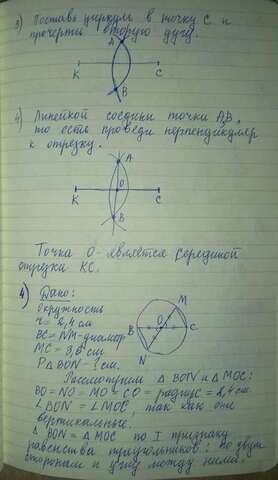 3) Поставь циркуль в точку С и
прочерти вторую дугу.
А
К
С
В
4) Линейкой соедини точки АВ,
то есть проведи перпендикуляр
к отрезку.
А
О
К
С
В
Точка О - является серединой
отрезка КС.
4) Дано:
Окружность
r = 2,4 см
BC = NM - диаметр
MC = 3,5 см
P∆BON - ? см.
M
B
O
C
N
Рассмотрим ∆ BON и ∆ MOC:
BO = NO = MO = CO = радиус = 2,4 см.
∠BON = ∠MOC, так как они
вертикальные.
∆ BON = ∆ MOC по I признаку
равенства треугольников: по двум
сторонам и углу между ними.